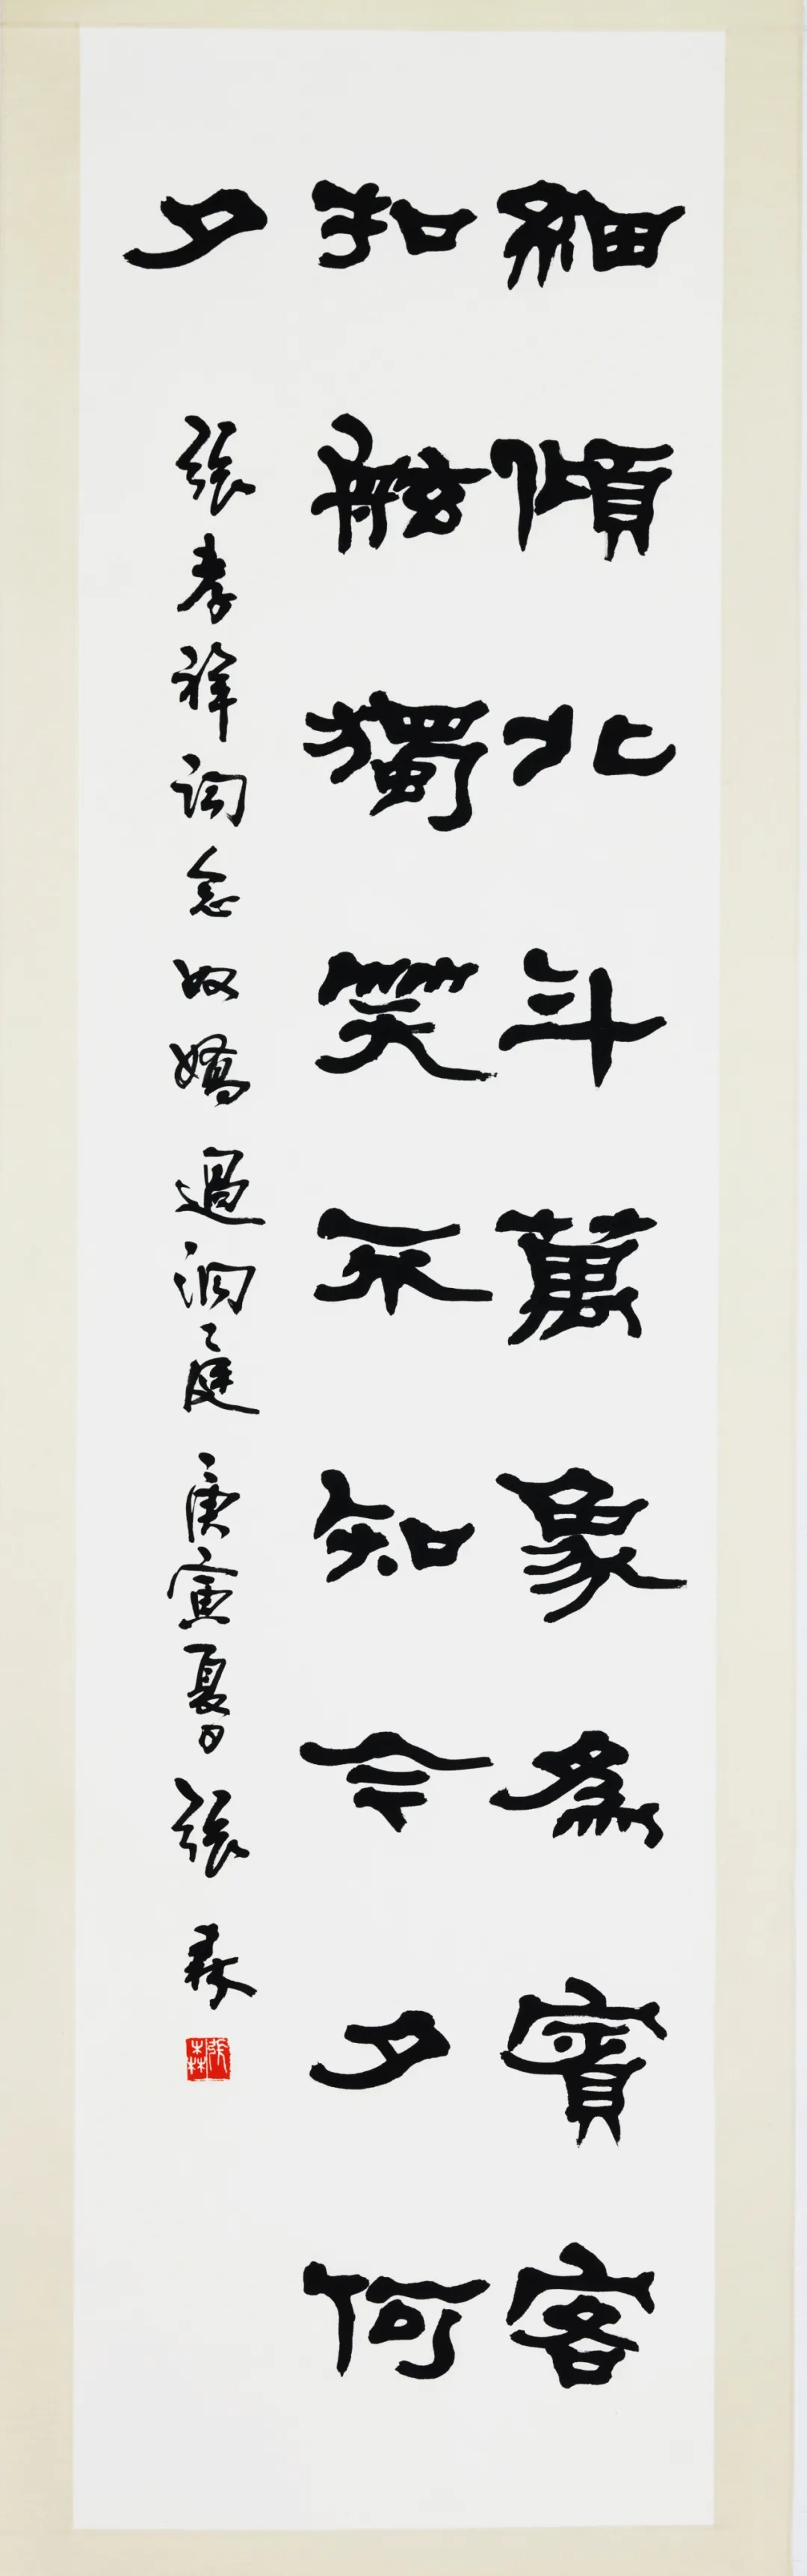 細傾北斗萬象為賓客
扣舷獨笑不知今夕何
夕
張孝祥詞念奴嬌過洞庭庚寅夏日張森
張森